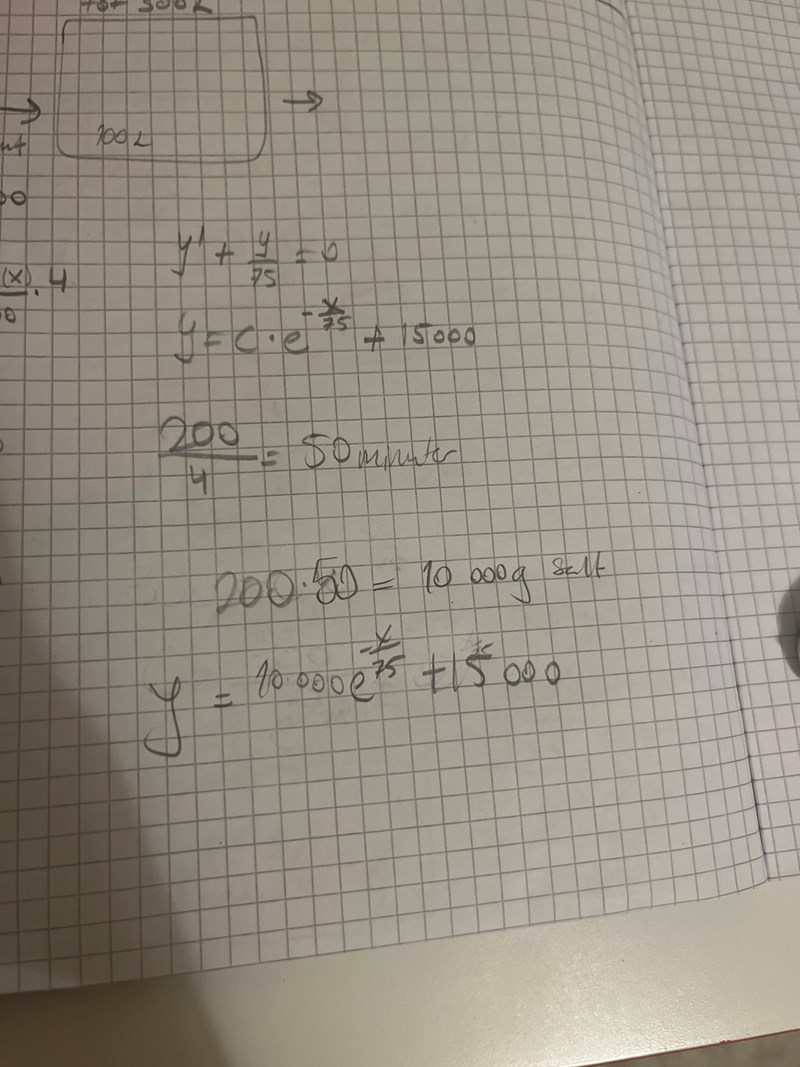 300L
100L
y' + y/75 = 0
(x) · 4
y = C · e^(-x/75) + 15000
200/4 = 50 minuter
200 · 50 = 10 000g salt
y = 10 000e^(-x/75) + 15 000